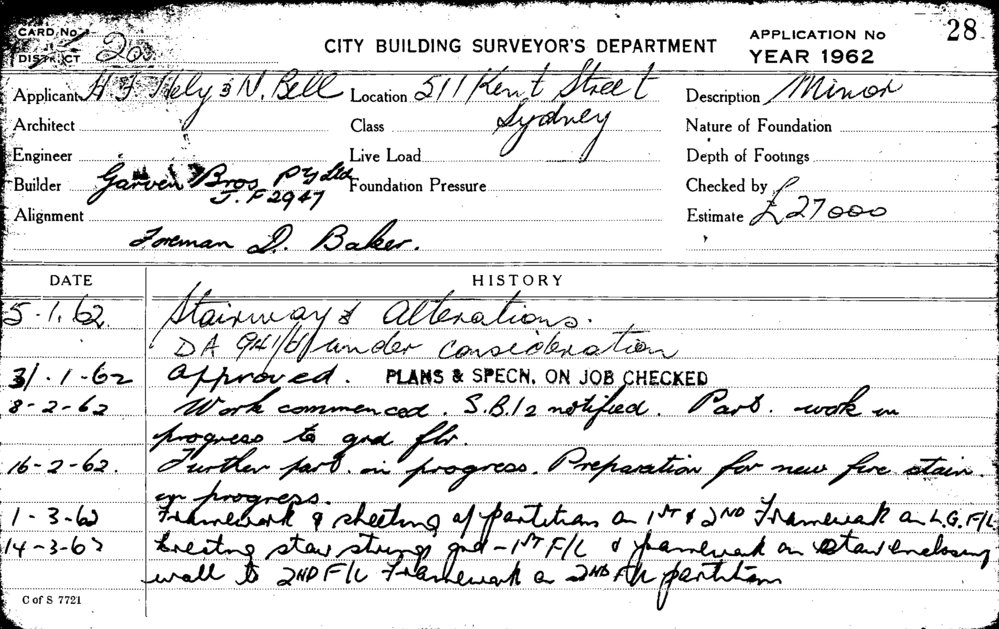 CARD No
DISTRICT 200
CITY BUILDING SURVEYOR'S DEPARTMENT
APPLICATION No 28
YEAR 1962
Applicant H J Hely & N. Bell Location 511 Kent Street Description Minor
Architect Class Sydney Nature of Foundation
Engineer Live Load Depth of Footings
Builder Garven Bros. Pty Ltd Foundation Pressure Checked by
J.F 2947
Alignment Estimate £27000
Foreman D. Baker.
DATE HISTORY
5.1.62 Stairway & Alterations.
DA 941/61 under consideration
31.1-62 Approved. PLANS & SPECN. ON JOB CHECKED
8-2-62 Work commenced. S.B.12 notified. Part. work in
progress to grd flr.
16-2-62. Further part. in progress. Preparation for new fire stair
in progress.
1-3-62 Framework & sheeting of partitions on 1ST & 2ND Framework on L.G. F/L
14-3-62 Erecting stair strings grd-1ST F/L & framework on stair enclosing
wall to 2ND F/L Framework on 2ND F/L partitions
C of S 7721